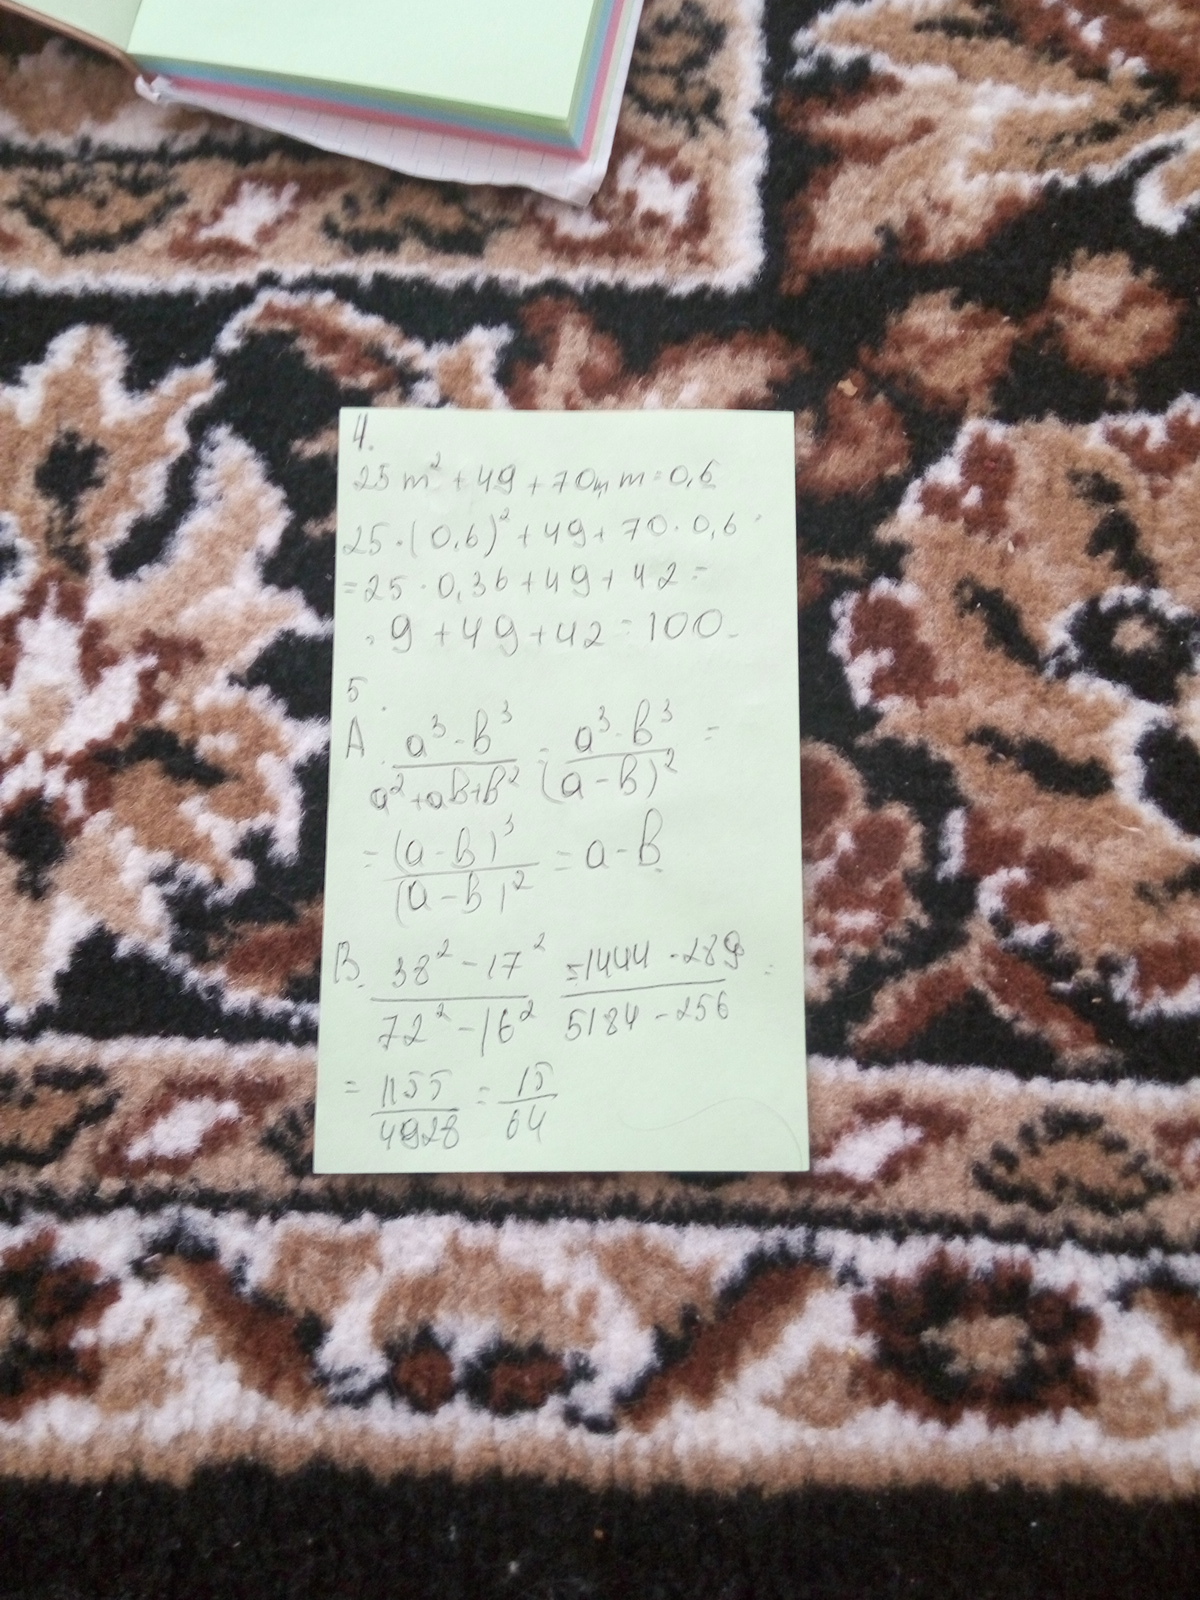 4.
25m² + 49 + 70m, m = 0,6
25·(0,6)² + 49 + 70·0,6 =
= 25·0,36 + 49 + 42 =
= 9 + 49 + 42 = 100.
5.
А. (a³ - b³)/(a² + ab + b²) = (a³ - b³)/(a - b)² =
= (a - b)³/(a - b)² = a - b.
В. (38² - 17²)/(72² - 16²) = (1444 - 289)/(5184 - 256) =
= 1155/4928 = 15/64